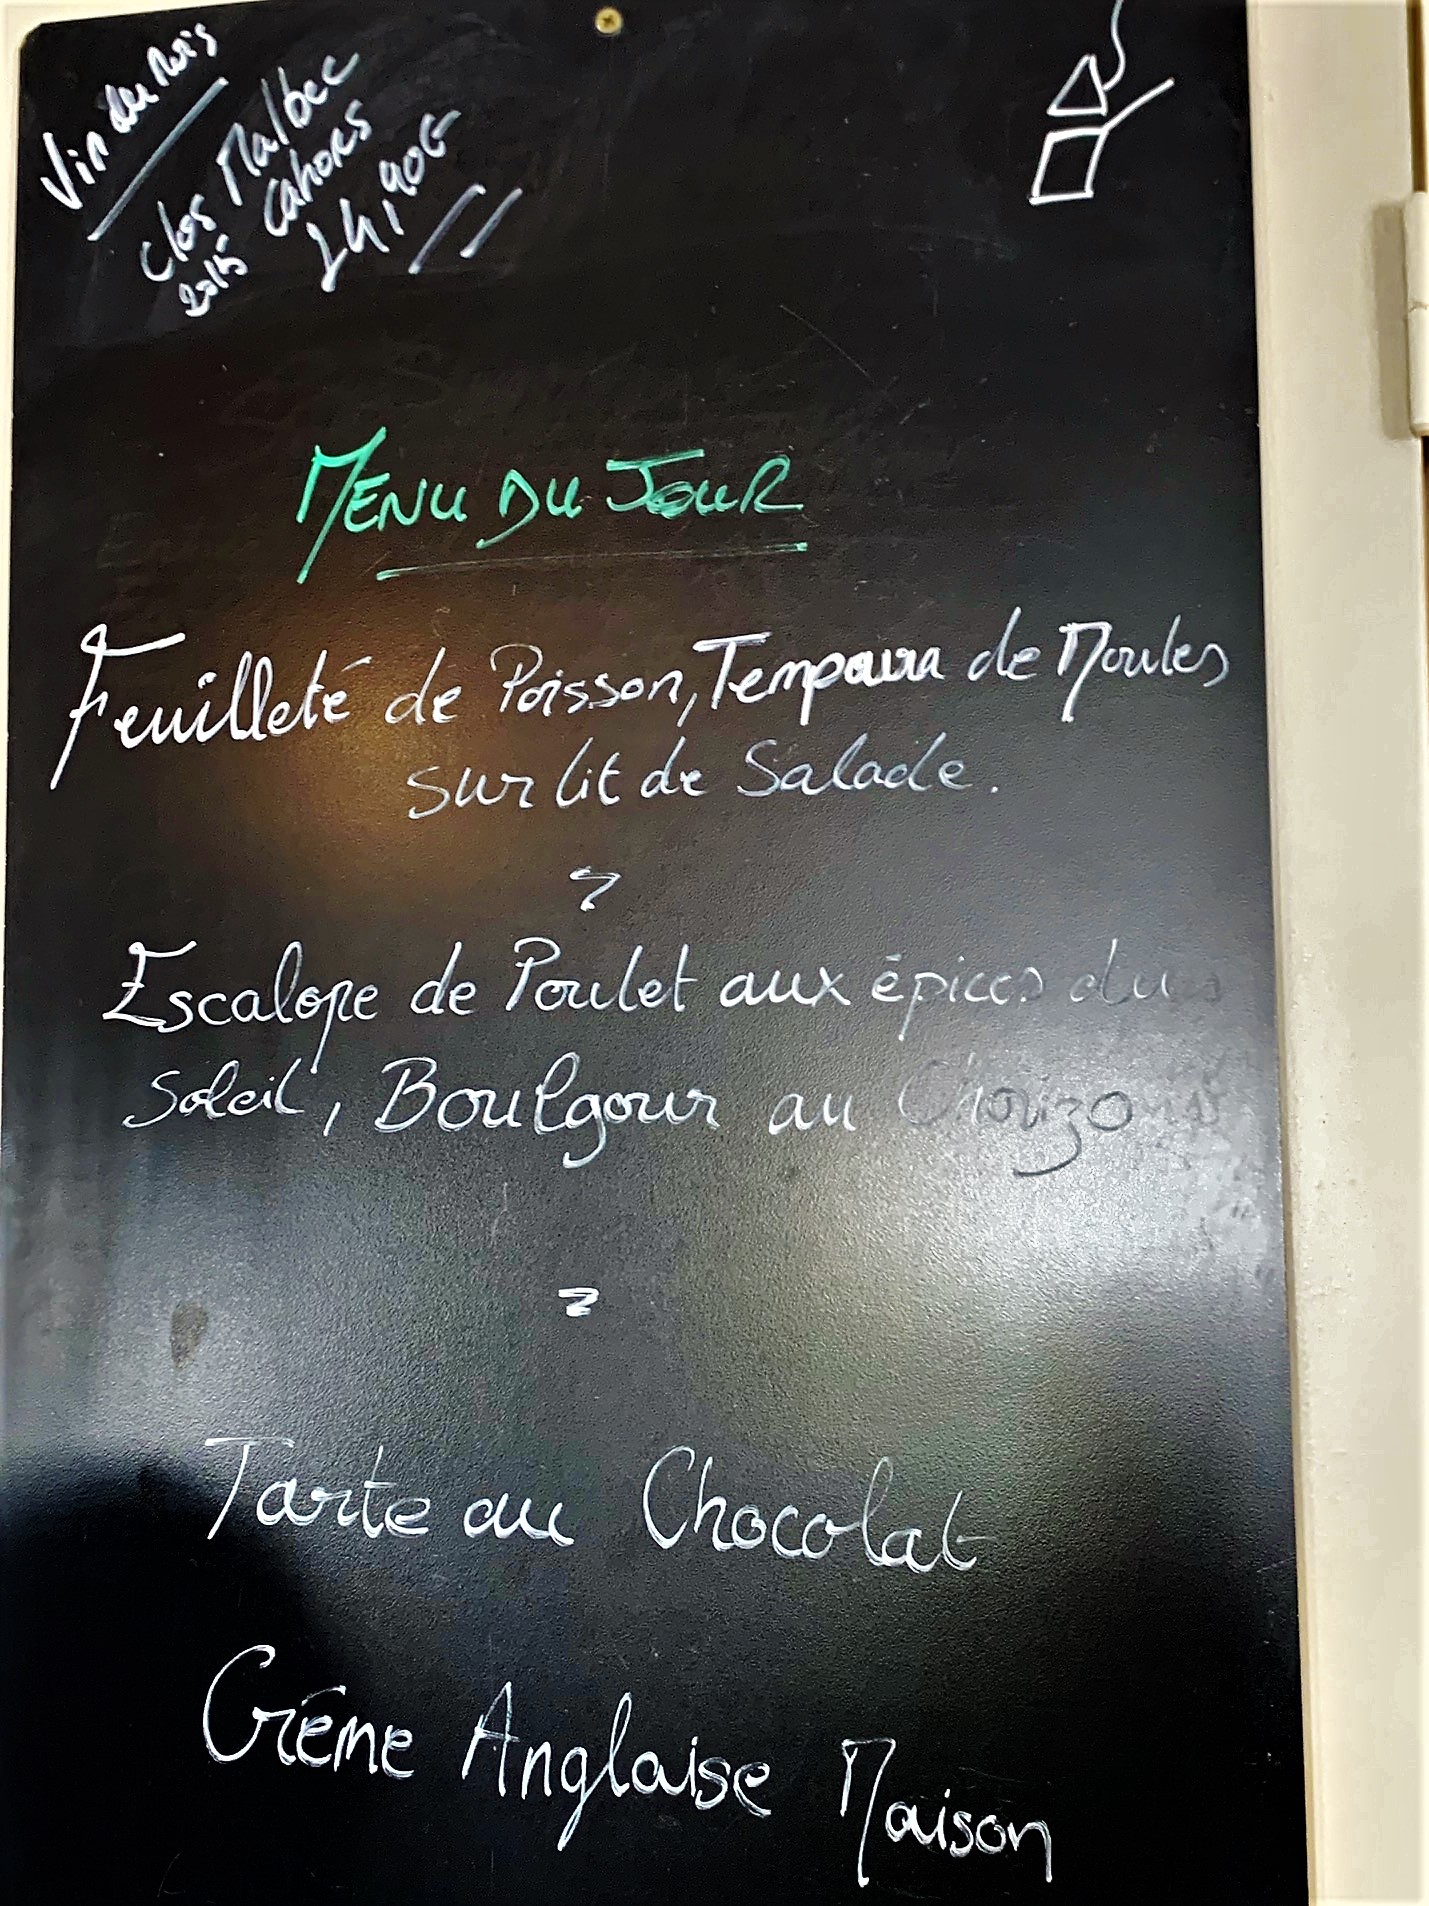 Vin du Mois
Clos Malbec
2015 Cahors
24,90€
MENU DU JOUR
Feuilleté de Poisson, Tempoura de Moules
sur lit de Salade.
Escalope de Poulet aux épices du
Soleil, Boulgour au Chorizo
Tarte au Chocolat
Crème Anglaise Maison